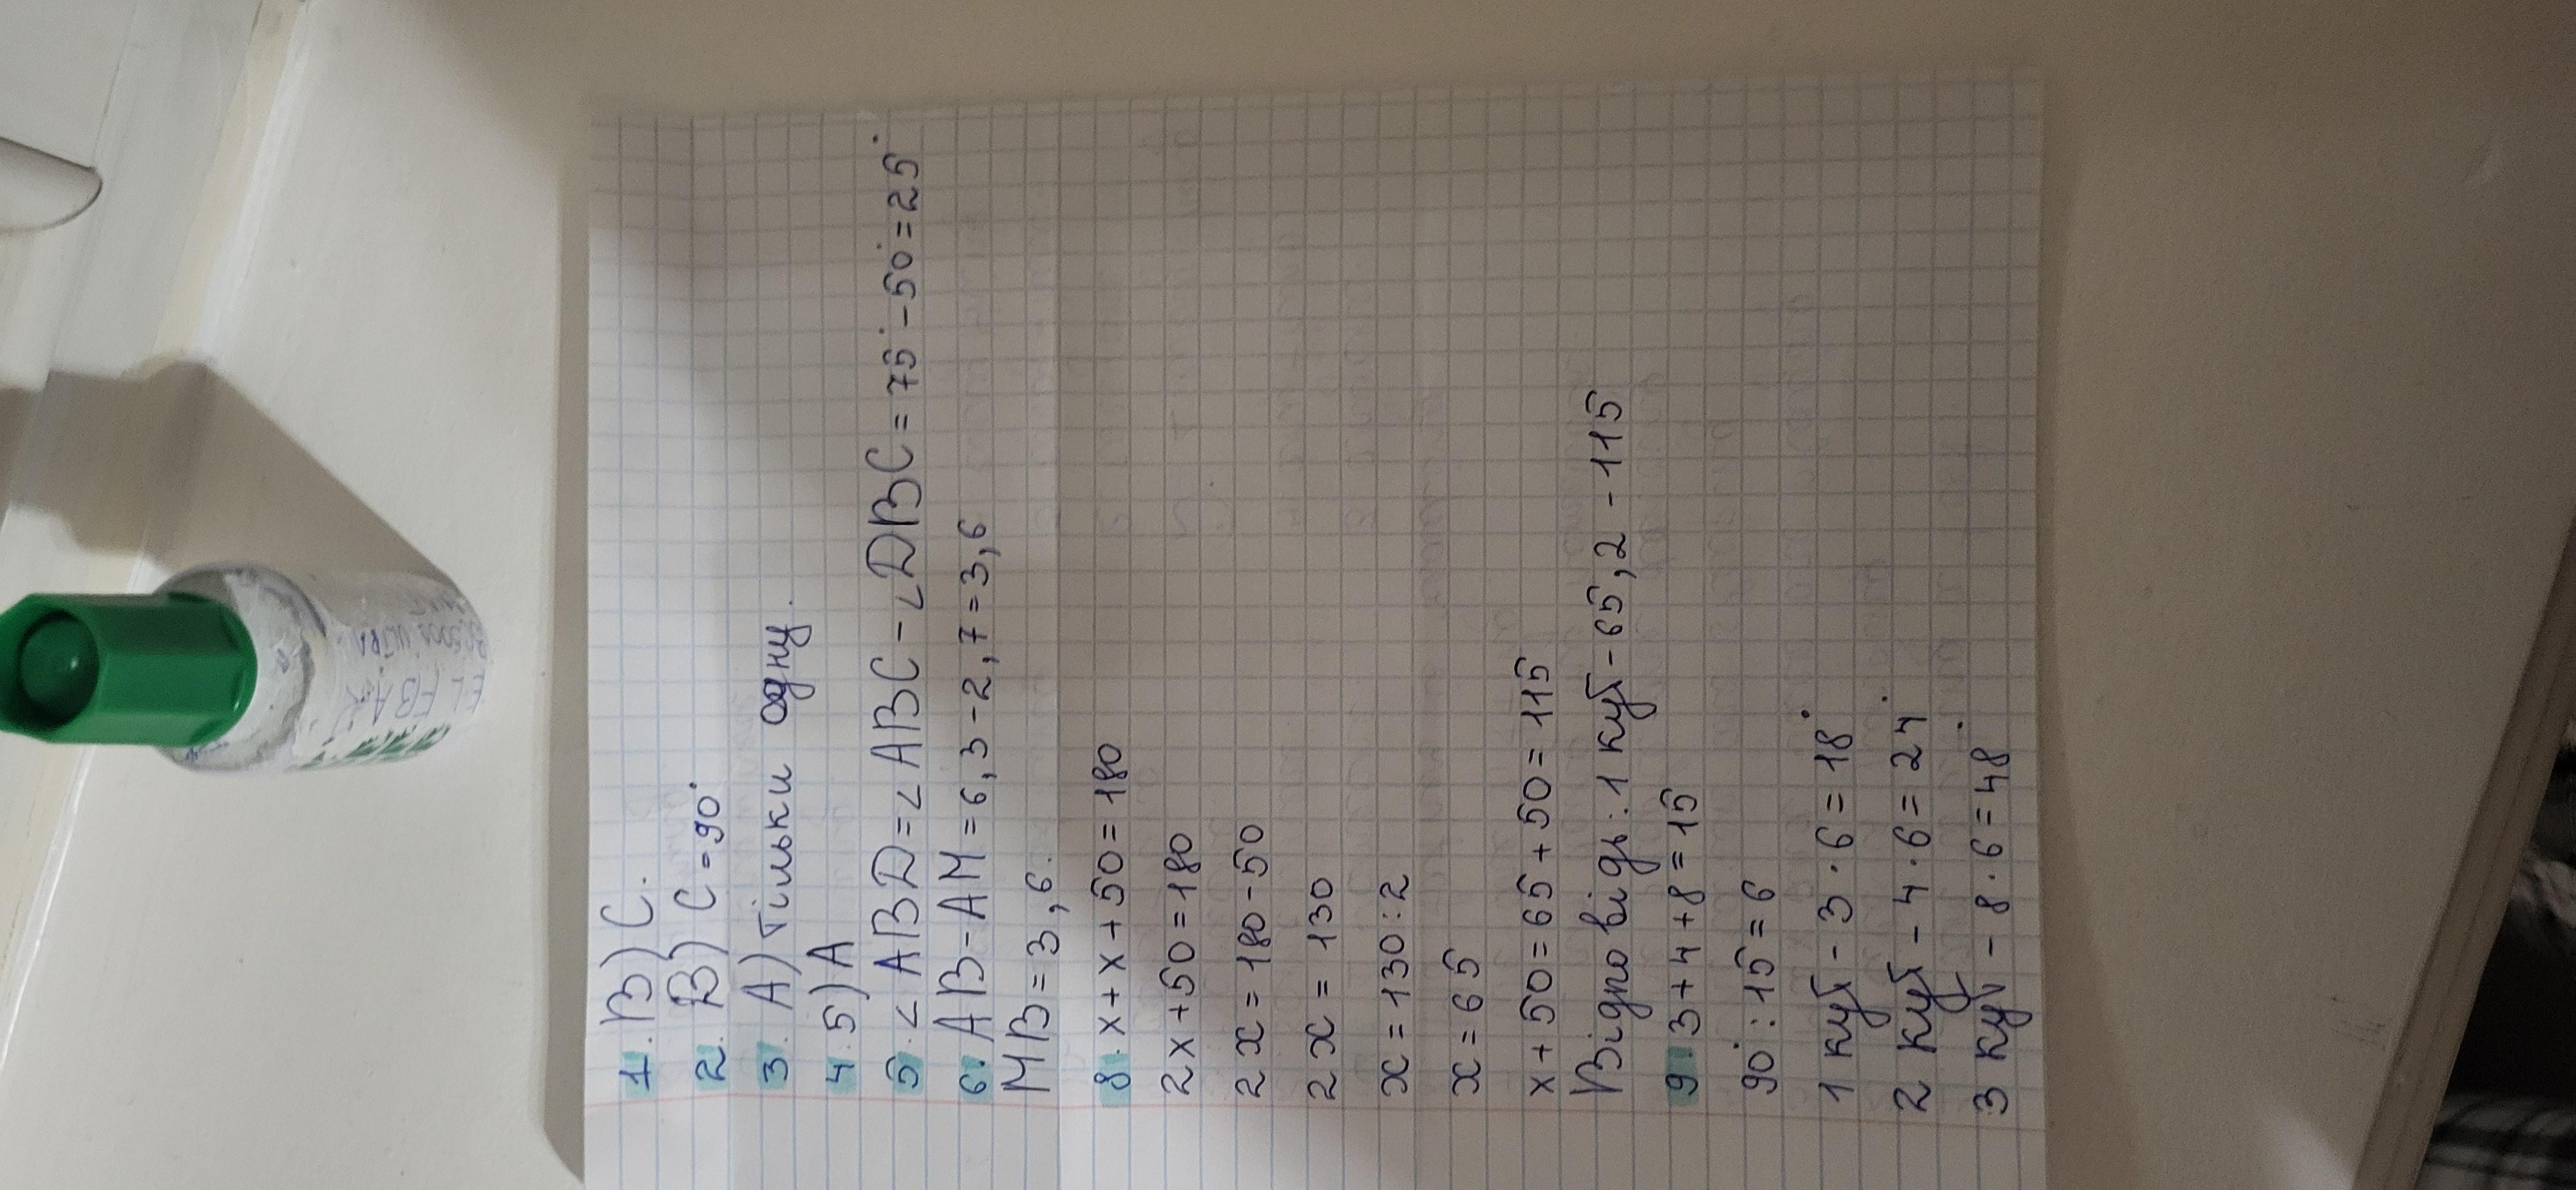 1. В) С.
2. В) С = 90°
3. А) Тільки одну.
4. Б) А
5. ∠ABD = ∠ABC - ∠DBC = 75° - 50° = 25°.
6. AB - AM = 6,3 - 2,7 = 3,6
MB = 3,6.
8. x + x + 50 = 180
2x + 50 = 180
2x = 180 - 50
2x = 130
x = 130 : 2
x = 65
x + 50 = 65 + 50 = 115
Відповідь: 1 кут - 65, 2 - 115
9. 3 + 4 + 8 = 15
90° : 15 = 6
1 кут - 3 · 6 = 18°
2 кут - 4 · 6 = 24°
3 кут - 8 · 6 = 48°
EL FBAR